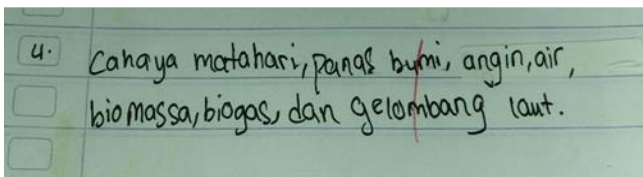 4. Cahaya matahari, panas bumi, angin, air,
biomassa, biogas, dan gelombang laut.